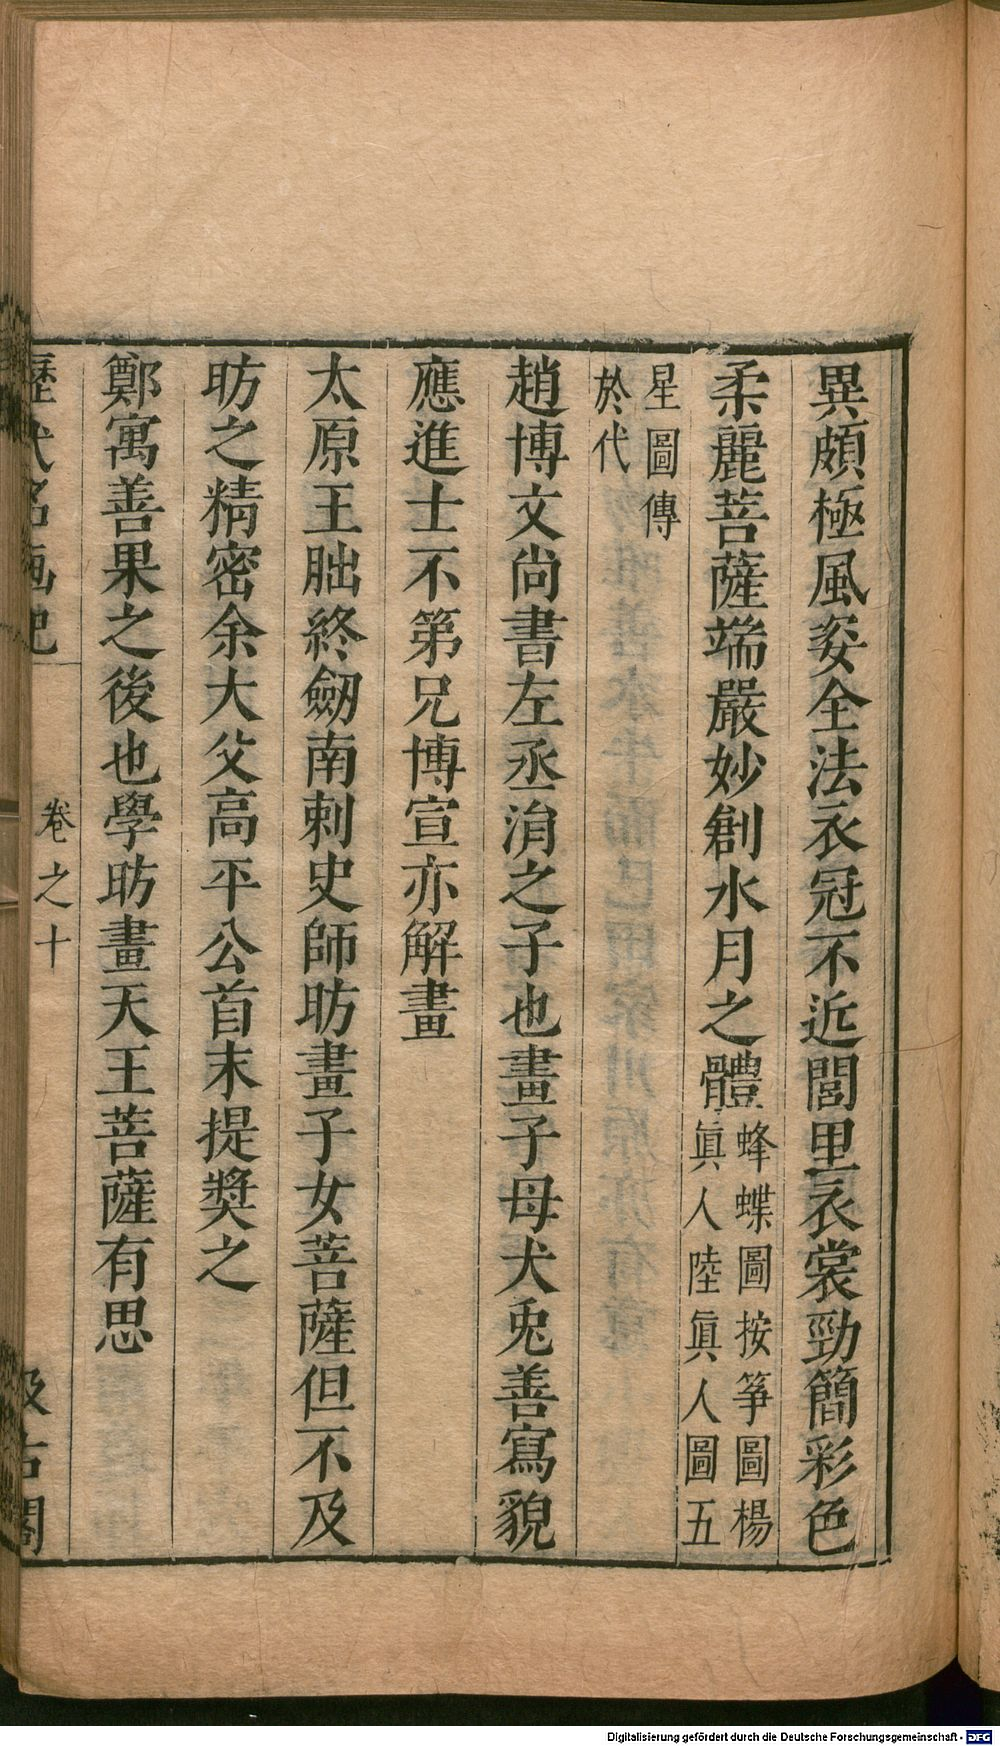 異頗極風姿全法衣冠不近閭里衣裳勁簡彩色
柔麗菩薩端嚴妙創水月之體
蜂蝶圖按筝圖楊
眞人陸眞人圖五
星圖傳
於代
趙博文尚書左丞涓之子也畫子母犬兎善寫貌
應進士不第兄博宣亦解畫
太原王朏終劒南刺史師昉畫子女菩薩但不及
昉之精密余大父高平公首末提奬之
鄭寓善果之後也學昉畫天王菩薩有思
歷代名画記
卷之十
汲古閣
Digitalisierung gefördert durch die Deutsche Forschungsgemeinschaft - DFG